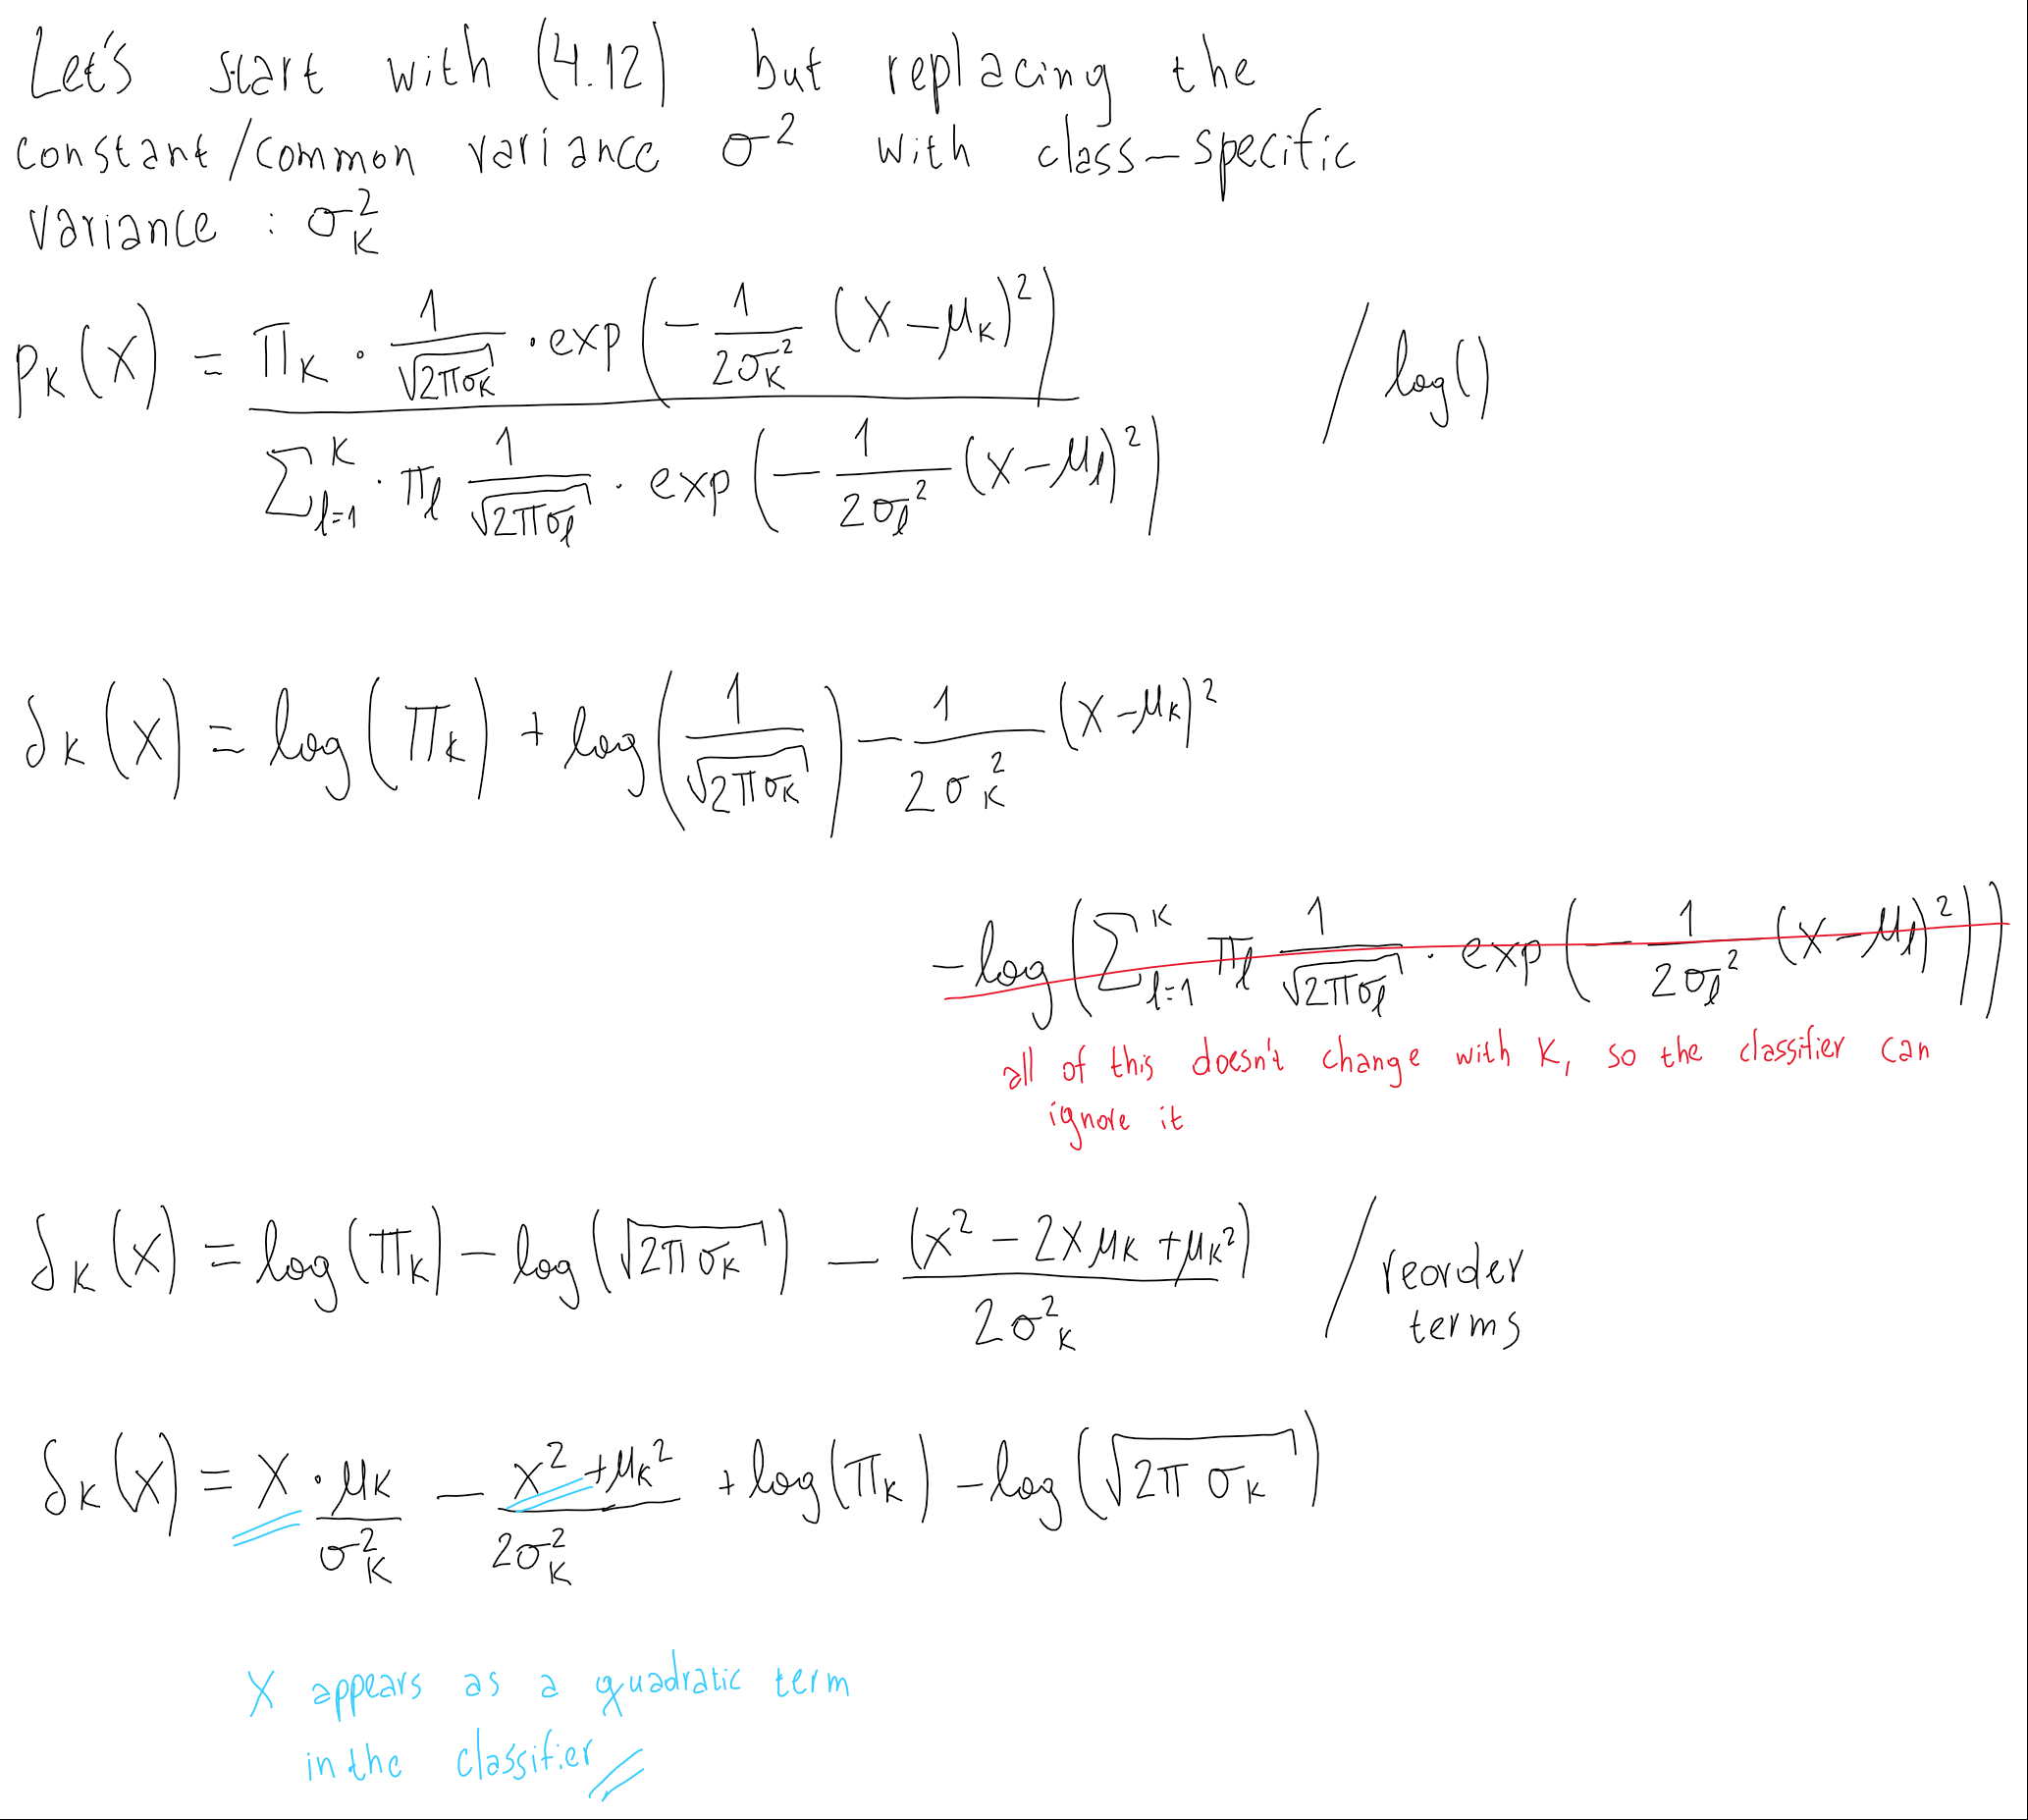 Let's start with (4.12) but replacing the
constant/common variance σ² with class-specific
variance : σ_k²
p_k(x) = π_k · 1/√(2πσ_k) · exp(-1/(2σ_k²) (x-μ_k)²) / Σ_{l=1}^K · π_l 1/√(2πσ_l) · exp(-1/(2σ_l²) (x-μ_l)²) / log()
δ_k(x) = log(π_k) + log(1/√(2πσ_k)) - 1/(2σ_k²) (x-μ_k)²
-log(Σ_{l=1}^K π_l 1/√(2πσ_l) · exp(-1/(2σ_l²) (x-μ_l)²))
all of this doesn't change with K, so the classifier can
ignore it
δ_k(x) = log(π_k) - log(√(2πσ_k)) - (x² - 2xμ_k + μ_k²)/(2σ_k²) / reorder
terms
δ_k(x) = x · μ_k/σ_k² - (x² + μ_k²)/(2σ_k²) + log(π_k) - log(√(2πσ_k))
X appears as a quadratic term
in the classifier